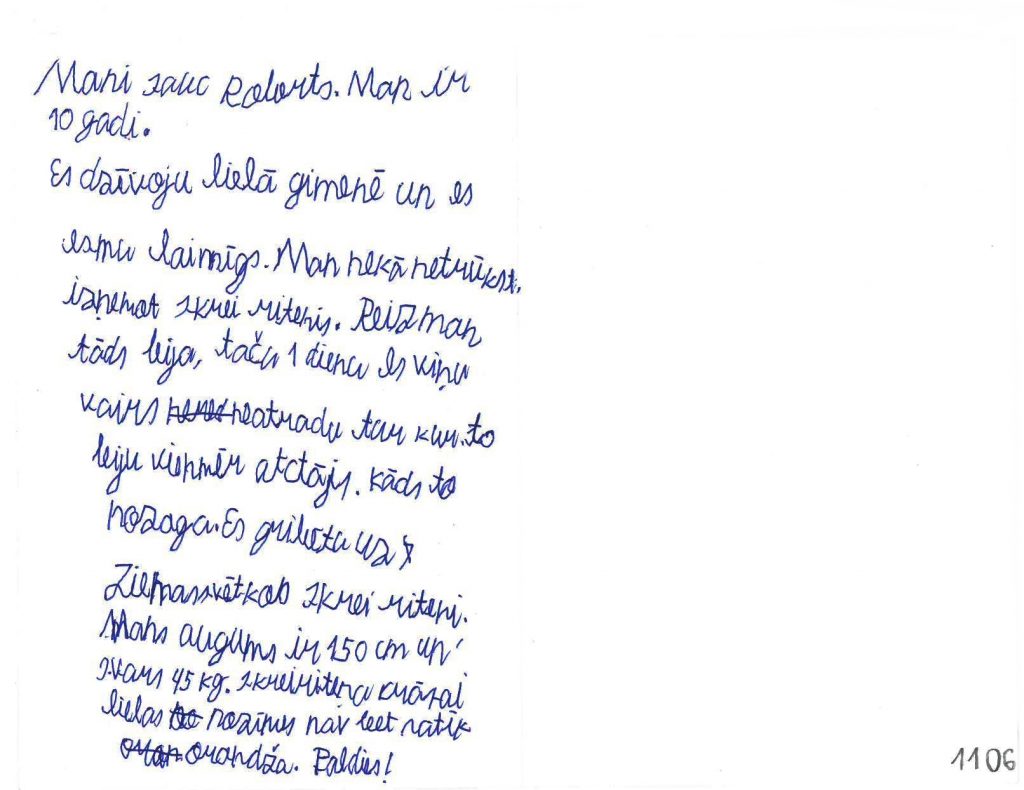 Mani sauc Roberts. Man ir
10 gadi.
Es dzīvoju lielā gimenē un es
esmu laimīgs. Man nekā netrūkst.
izņemot skrei ritenis. Reiz man
tāds bija, taču 1 dienu es viņu
vairs neatradu tur kur to
biju vienmēr atstājis. kāds to
nozaga. Es gribētu uz
Ziemassvētkob skrei riteni.
Mans augums ir 150 cm un
svars 45 kg. skreiriteņa krāsai
lielas nozīmes nav bet patīk
orandža. Paldies!
1106